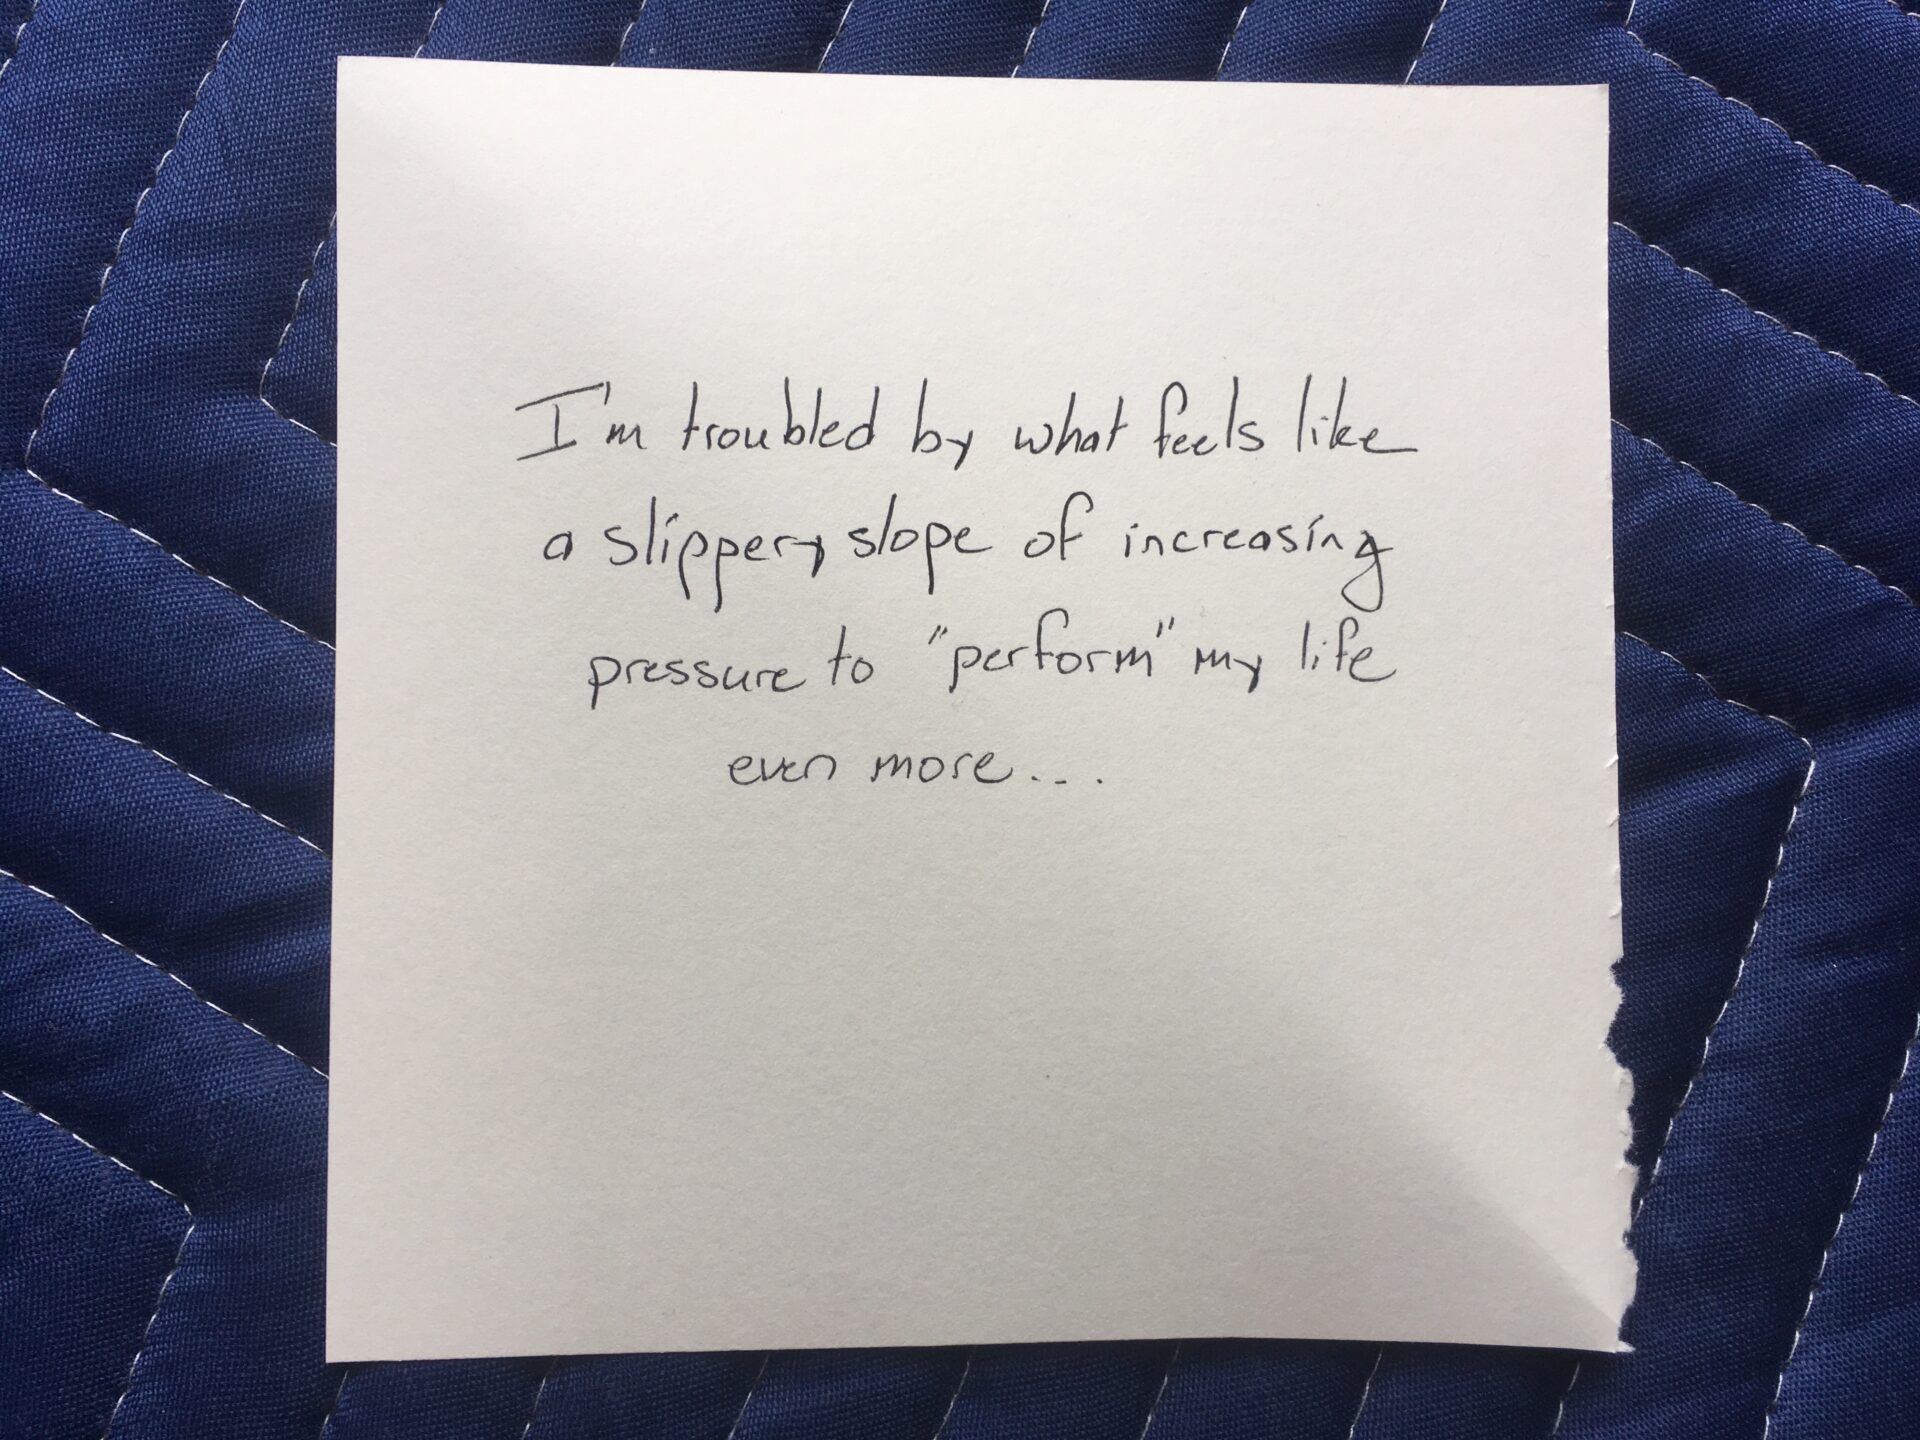 I'm troubled by what feels like
a slippery slope of increasing
pressure to "perform" my life
even more...